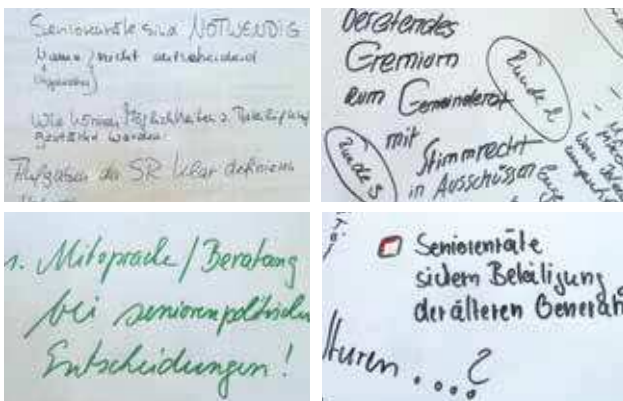 Seniorenräte sind NOTWENDIG
Name / nicht entscheidend
Wie können Möglichkeiten z. Beteiligung
gestärkt werden
Aufgaben der SR klar definieren
beratendes
Gremium
zum Gemeinderat
mit
Stimmrecht
in Ausschüssen
Runde 2
Runde 3
1. Mitsprache / Beratung
bei seniorenpolitischen
Entscheidungen!
Seniorenräte
sichern Beteiligung
der älteren Generat
lturen....?